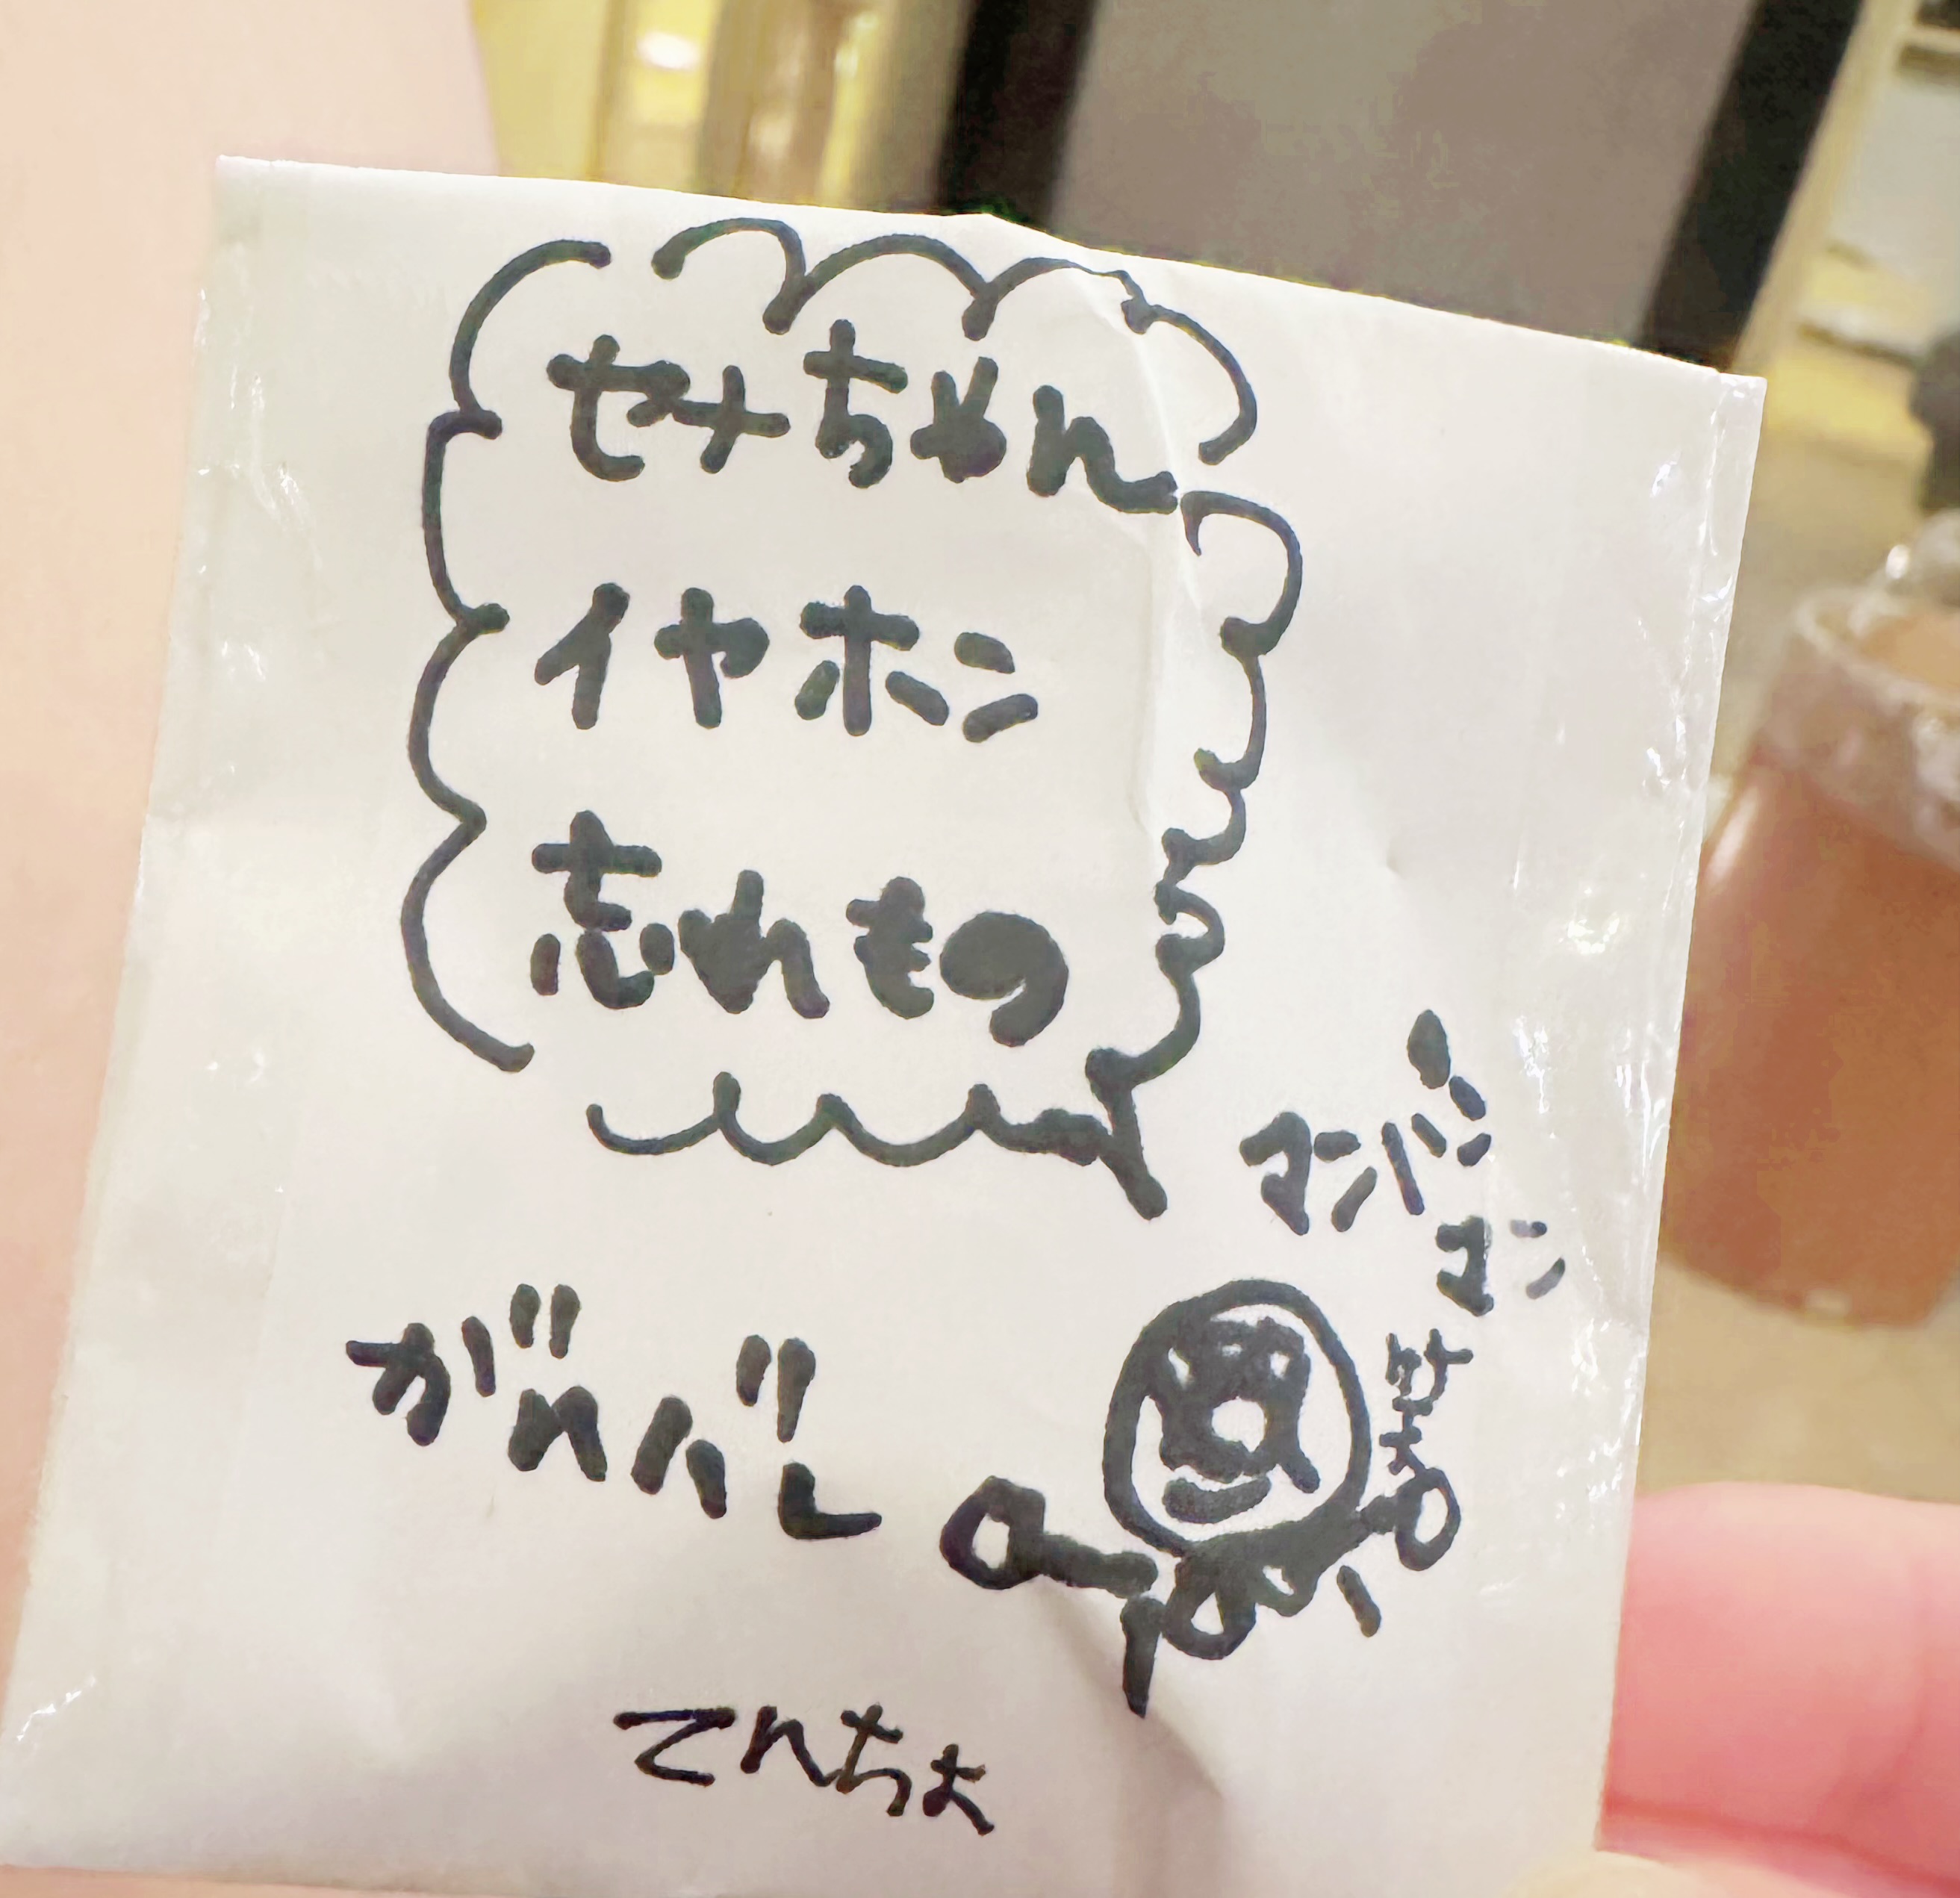 セナちゃん
イヤホン
忘れもの
がんバレ
てんちょ